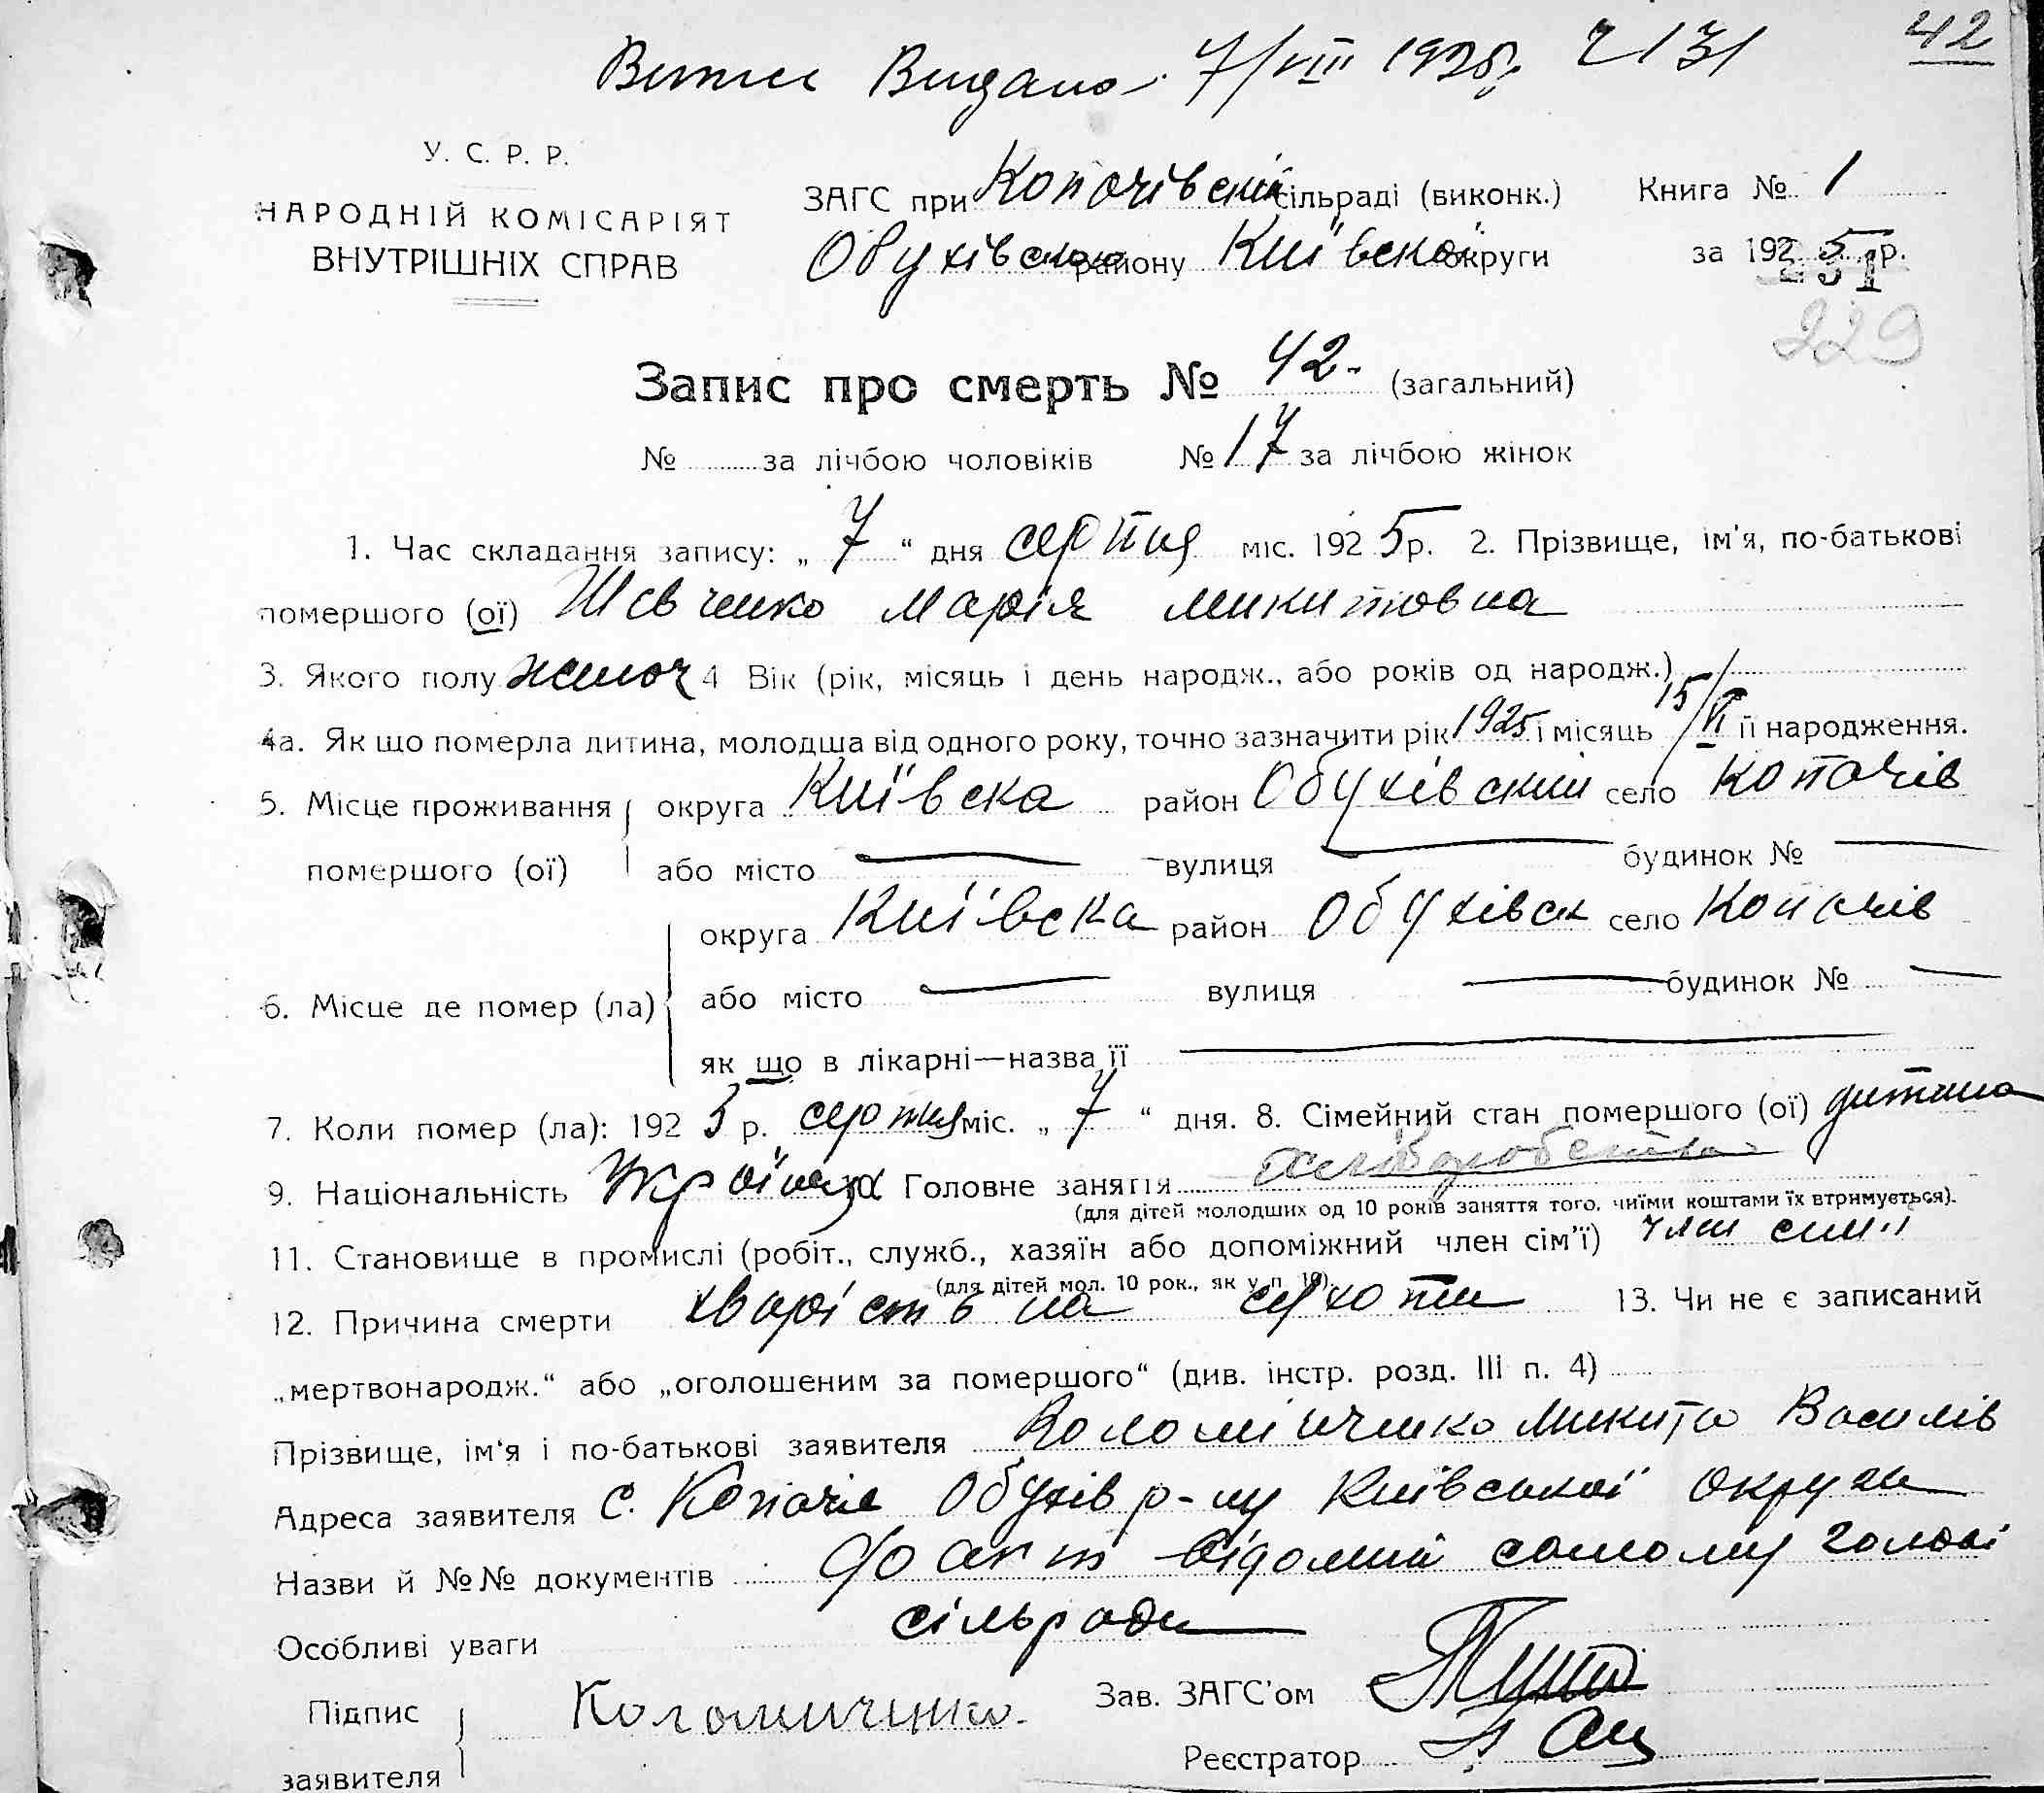 Витяг Видано 7/VIII 1925р. Ч 131 42
У. С. Р. Р.
НАРОДНІЙ КОМІСАРІЯТ
ВНУТРІШНІХ СПРАВ
ЗАГС при Копачівскій сільраді (виконк.) Книга № 1
Обухівского району Київскої округи за 1925 р.
231
229
Запис про смерть № 42 (загальний)
№ за лічбою чоловіків № 17 за лічбою жінок
1. Час складання запису: „ 7 “ дня серпня міс. 1925 р. 2. Прізвище, ім'я, по-батькові
помершого (ої) Шевченко Марія Микитовна
3. Якого полу жіноч 4 Вік (рік, місяць і день народж., або років од народж.)
4а. Як що померла дитина, молодша від одного року, точно зазначити рік 1925 і місяць 15/VI її народження.
5. Місце проживання округа Київска район Обухівский село Копачів
помершого (ої) або місто — вулиця — будинок № —
округа Київска район Обухівск село Копачів
6. Місце де помер (ла) або місто — вулиця — будинок № —
як що в лікарні—назва її —
7. Коли помер (ла): 1925 р. серпня міс. „ 7 “ дня. 8. Сімейний стан помершого (ої) дитина
9. Національність Українка Головне заняття хліборобство
(для дітей молодших од 10 років заняття того, чиїми коштами їх втримується).
11. Становище в промислі (робіт., служб., хазяїн або допоміжний член сім'ї) член сім'ї
(для дітей мол. 10 рок., як у п. 10).
12. Причина смерти хворість на сухоти 13. Чи не є записаний
„мертвонародж.“ або „оголошеним за помершого“ (див. інстр. розд. III п. 4)
Прізвище, ім'я і по-батькові заявителя Коломійченко Микита Василів
Адреса заявителя с. Копачів Обухів р-ну Київської округи
Назви й №№ документів факт відомий самому голові
Особливі уваги сільради
Підпис Коломиченко Зав. ЗАГС'ом
заявителя Реєстратор